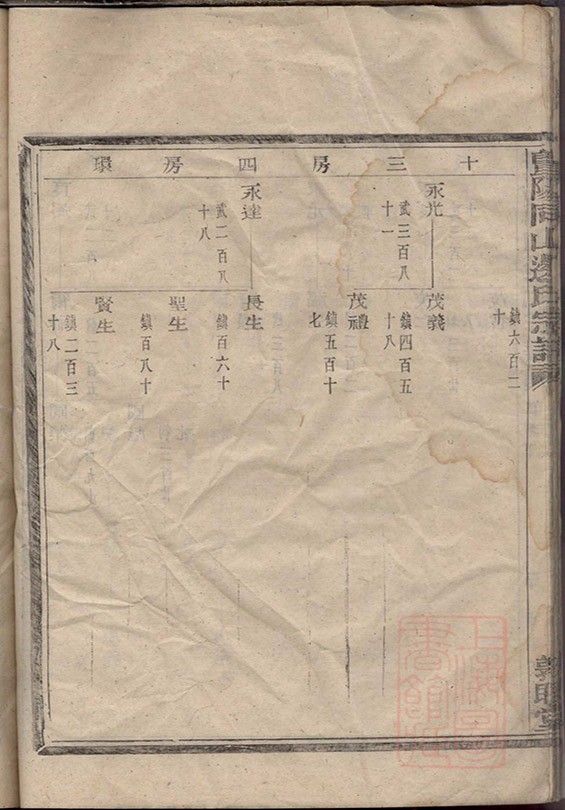 暨陽同山邊氏宗譜
十三房四房環
鎮六百二
十
永光
武三百八
十一
茂義
鎮四百五
十八
茂禮
鎮五百十
七
永達
武二百八
十八
長生
鎮百六十
聖生
鎮百八十
賢生
鎮二百三
十八
敦睦堂